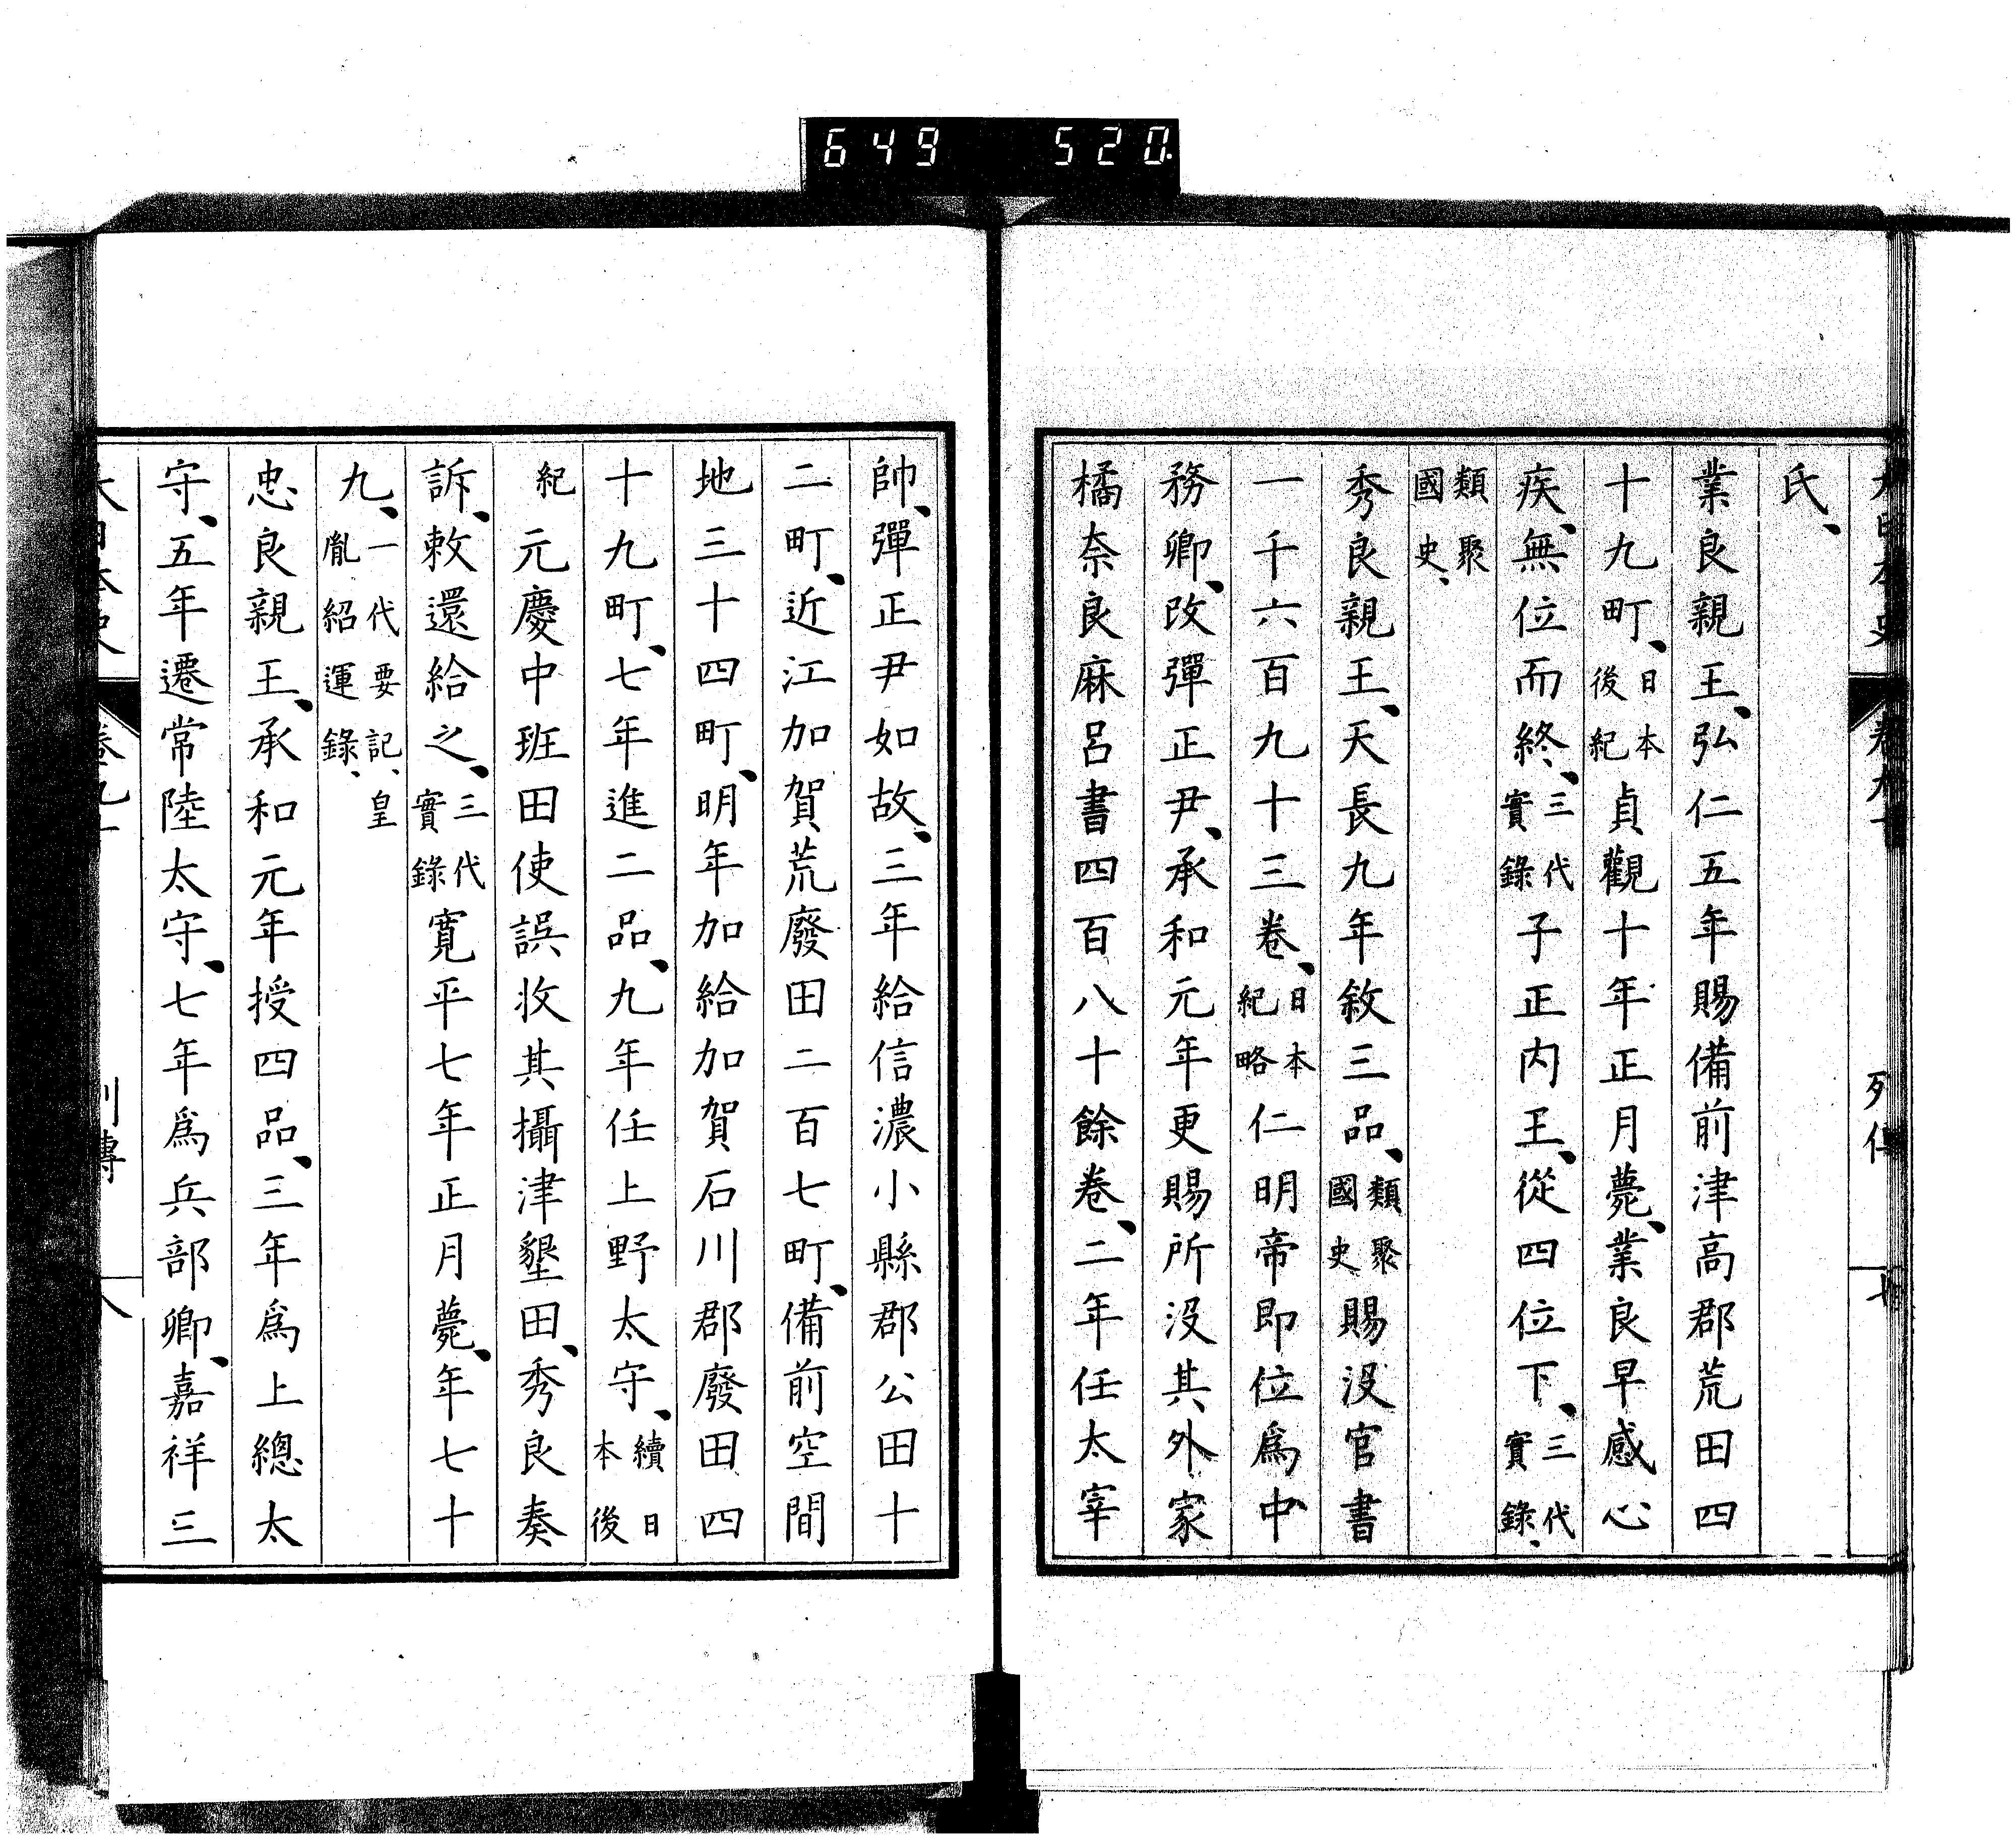 649 520
氏、
業良親王、弘仁五年賜備前津高郡荒田四
十九町、日本後紀貞觀十年正月薨、業良早感心
疾、無位而終、三代實錄子正内王、從四位下、三代實錄、
類聚國史、
秀良親王、天長九年敘三品、類聚國史賜没官書
一千六百九十三卷、日本紀略仁明帝即位爲中
務卿、改彈正尹、承和元年更賜所没其外家
橘奈良麻呂書四百八十餘卷、二年任太宰
帥、彈正尹如故、三年給信濃小縣郡公田十
二町、近江加賀荒廢田二百七町、備前空間
地三十四町、明年加給加賀石川郡廢田四
十九町、七年進二品、九年任上野太守、續日本後
紀元慶中班田使誤收其攝津墾田、秀良奏
訴、敕還給之、三代實錄寛平七年正月薨、年七十
九、一代要記、皇胤紹運錄、
忠良親王、承和元年授四品、三年爲上總太
守、五年遷常陸太守、七年爲兵部卿、嘉祥三